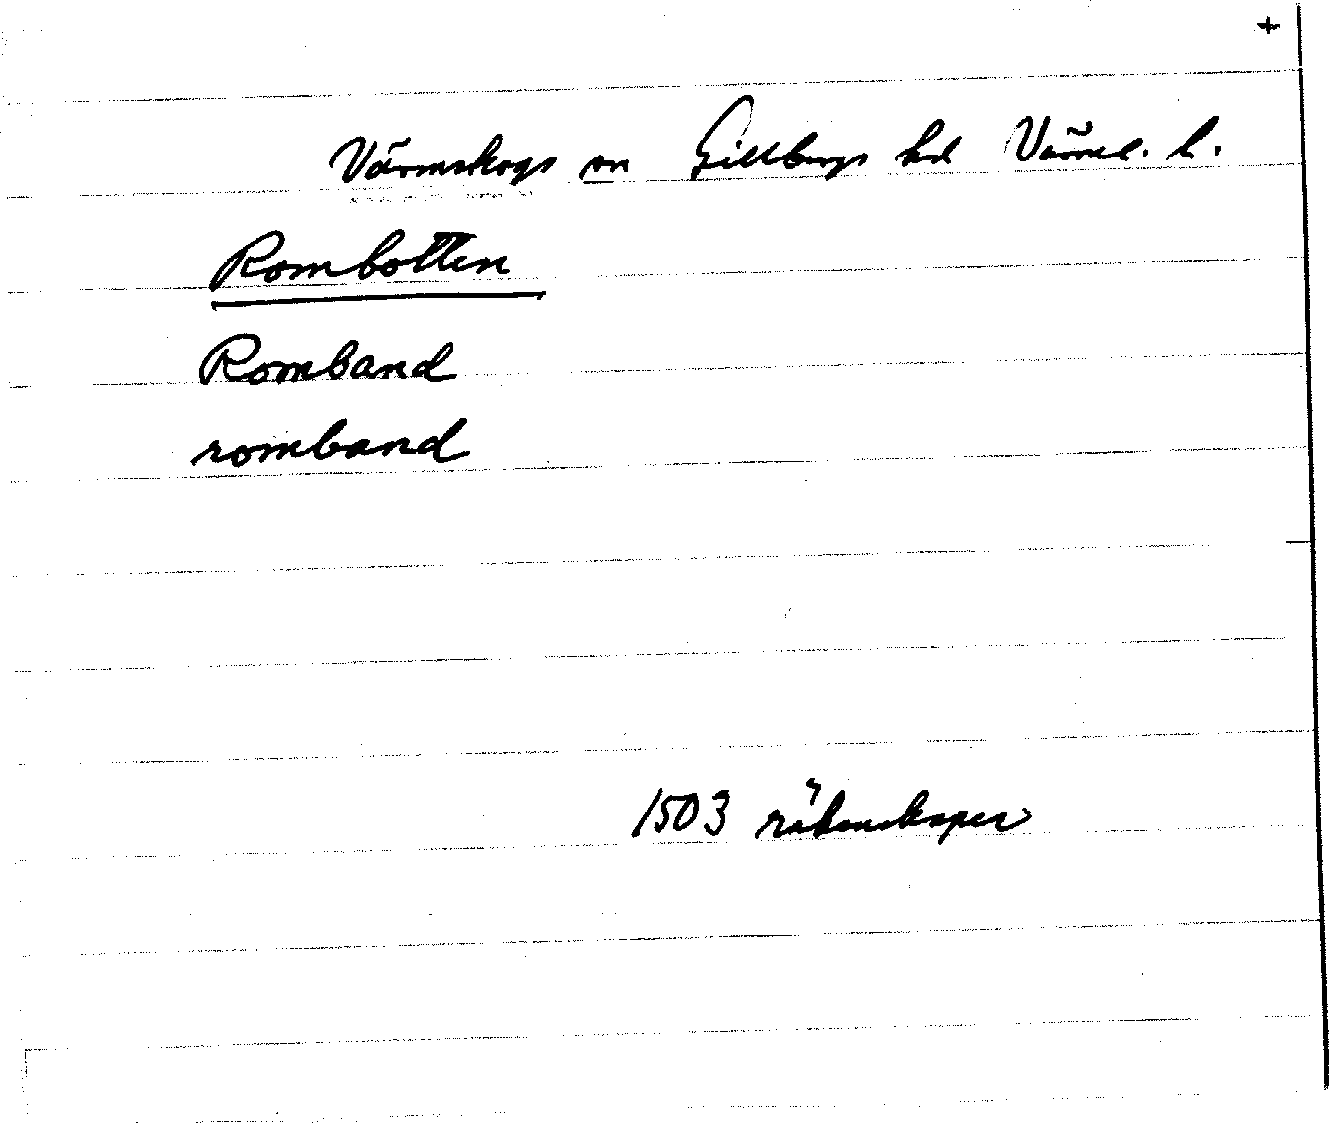 +
Värmskogs sn Gillbergs hd Värml. l.
Rombotten
Romband
romband
1503 räkenskaper